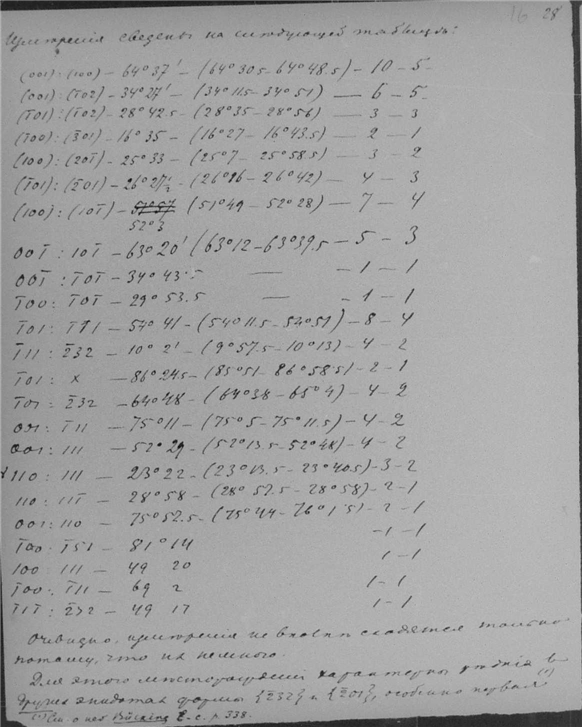 16 28
Измѣренія сведены на слѣдующей таблицѣ:
(001):(100) – 64°37' – (64°30.5 – 64°48.5) – 10 – 5
(001):(1̅02) – 34°27' – (34°11.5 – 34°51) – 6 – 5
(1̅01):(1̅02) – 28°42.5 – (28°35 – 28°56) – 3 – 3
(1̅00):(3̅01) – 16°35 – (16°27 – 16°43.5) – 2 – 1
(100):(201̅) – 25°33 – (25°7 – 25°58.5) – 3 – 2
(1̅01):(2̅01) – 26°27½ – (26°16 – 26°42) – 4 – 3
(100):(101̅) – (51°49 – 52°28) – 7 – 4
52°3
001̅ : 101̅ – 63°20' (63°12 – 63°39.5 – 5 – 3
001̅ : 1̅01̅ – 34°43.5 — – 1 – 1
1̅00 : 1̅01̅ – 29°53.5 — – 1 – 1
1̅01 : 1̅1̅1 – 54°41 – (54°11.5 – 54°51) – 8 – 4
1̅11 : 2̅32 – 10°2' – (9°57.5 – 10°13) – 4 – 2
1̅01 : x – 86°24.5 – (85°51 – 86°58.5) – 2 – 1
1̅01 : 2̅32 – 64°48 – (64°38 – 65°4) – 4 – 2
001 : 1̅11 – 75°11 – (75°5 – 75°11.5) – 4 – 2
001 : 111 – 52°29 – (52°13.5 – 52°48) – 4 – 2
110 : 111 – 23°22 – (23°13.5 – 23°40.5) – 3 – 2
110 : 111̅ – 28°58 – (28°57.5 – 28°58) – 2 – 1
001 : 110 – 75°52.5 – (75°44 – 76°1.5) – 2 – 1
1̅00 : 1̅51 – 81°14 – 1 – 1
100 : 111 – 49 20 – 1 – 1
1̅00 : 1̅11 – 69 2 1 – 1
1̅11̅ : 2̅32 – 49 17 1 – 1
Очевидно, измѣренія не вполнѣ сходятся только
потому, что их немного.
Для этого мѣсторожденія характерны в
других эпидотах формы {2̅32} и {2̅01}, особенно первая (1)
(1) См. о ней Bücking l. c. p. 338.